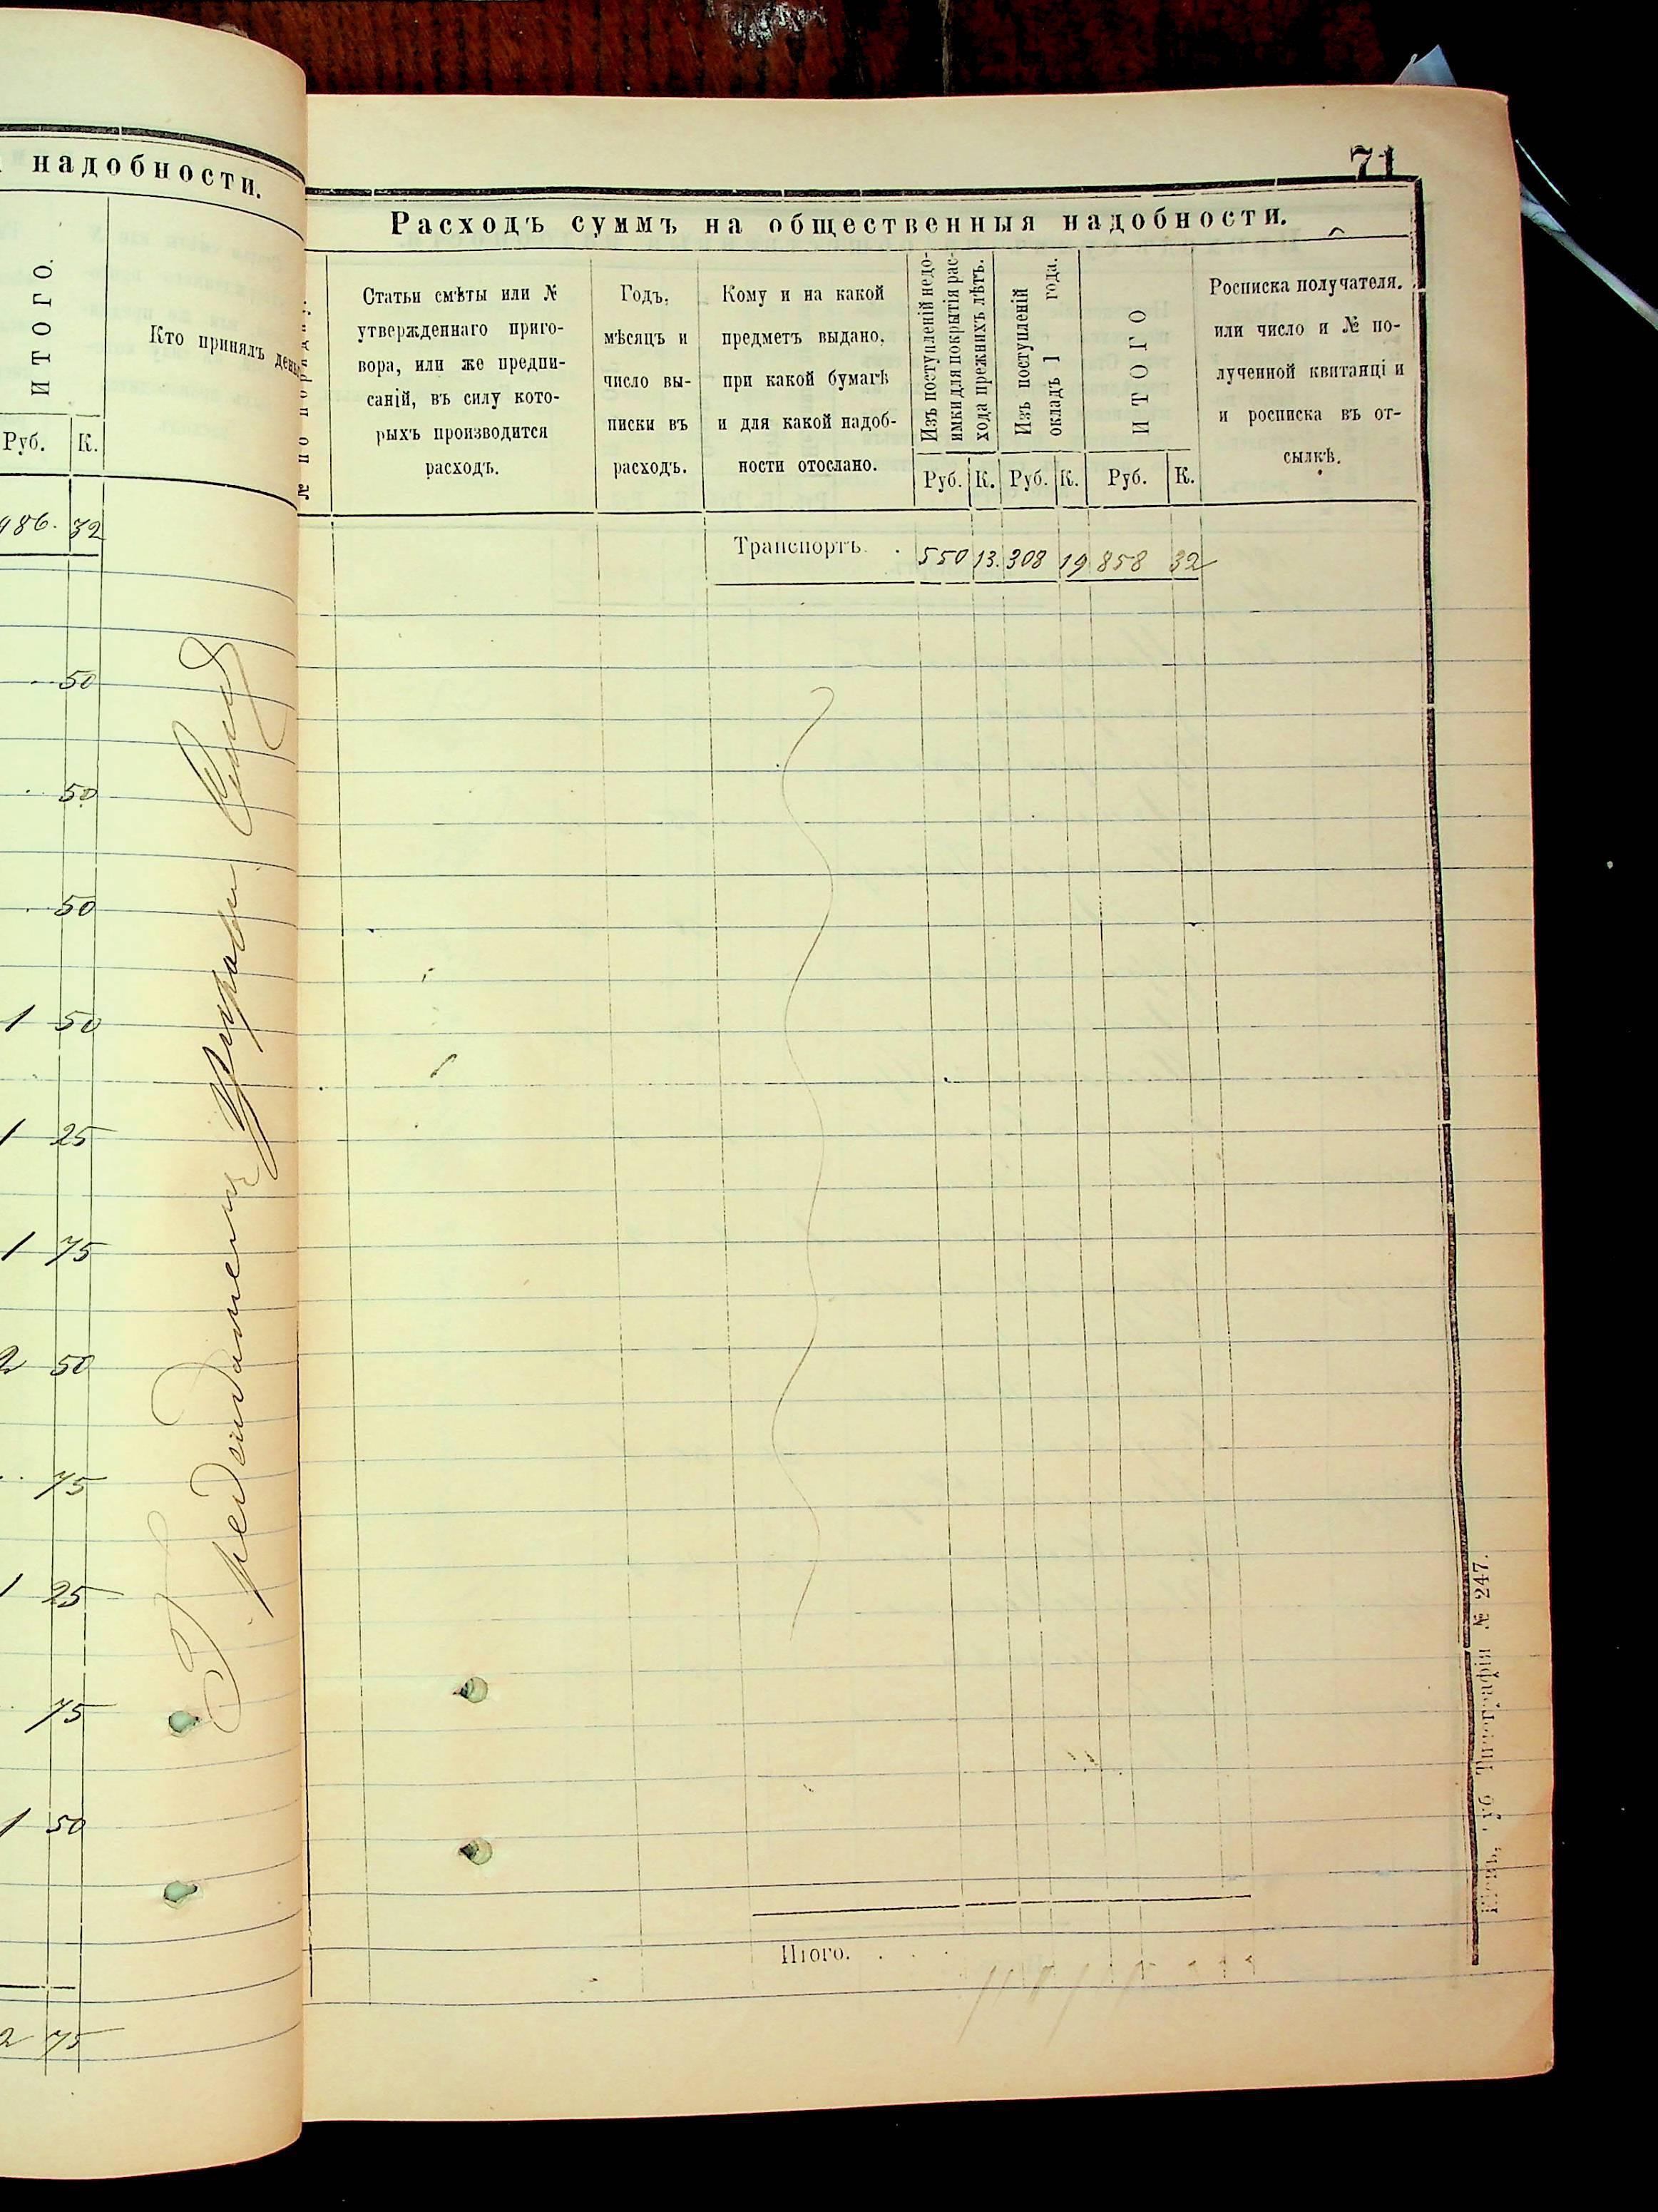 надобности.
ИТОГО.
Кто принялъ
Руб. К.
486. 32
50
50
50
1 50
1 25
1 75
2 50
75
1 25
75
1 50
2 75
71
Расходъ суммъ на общественныя надобности.
№ по порядку.
Статьи смѣты или №
утвержденнаго приго-
вора, или же предпи-
саній, въ силу кото-
рыхъ производится
расходъ.
Годъ,
мѣсяцъ и
число вы-
писки въ
расходъ.
Кому и на какой
предметъ выдано,
при какой бумагѣ
и для какой надоб-
ности отослано.
Изъ поступленій недо-
имки для покрытія рас-
хода прежнихъ лѣтъ.
Изъ поступленій
окладъ 1 года.
ИТОГО
Росписка получателя.
или число и № по-
лученной квитанціи
и росписка въ от-
сылкѣ.
Руб. К. Руб. К. Руб. К.
Транспортъ. 550 13. 308 19 858 32
Итого.
Типографія № 247.